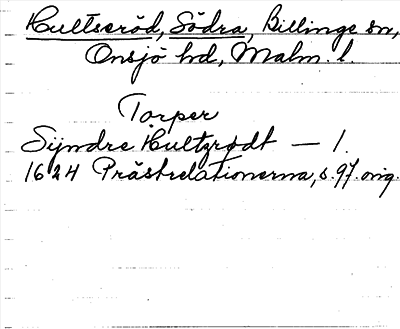 Hultseröd, Södra, Billinge sn,
Onsjö hd, Malm. l.
Torper
Syndre Hultzrødt — 1.
1624 Prästrelationerna, s. 97. orig.